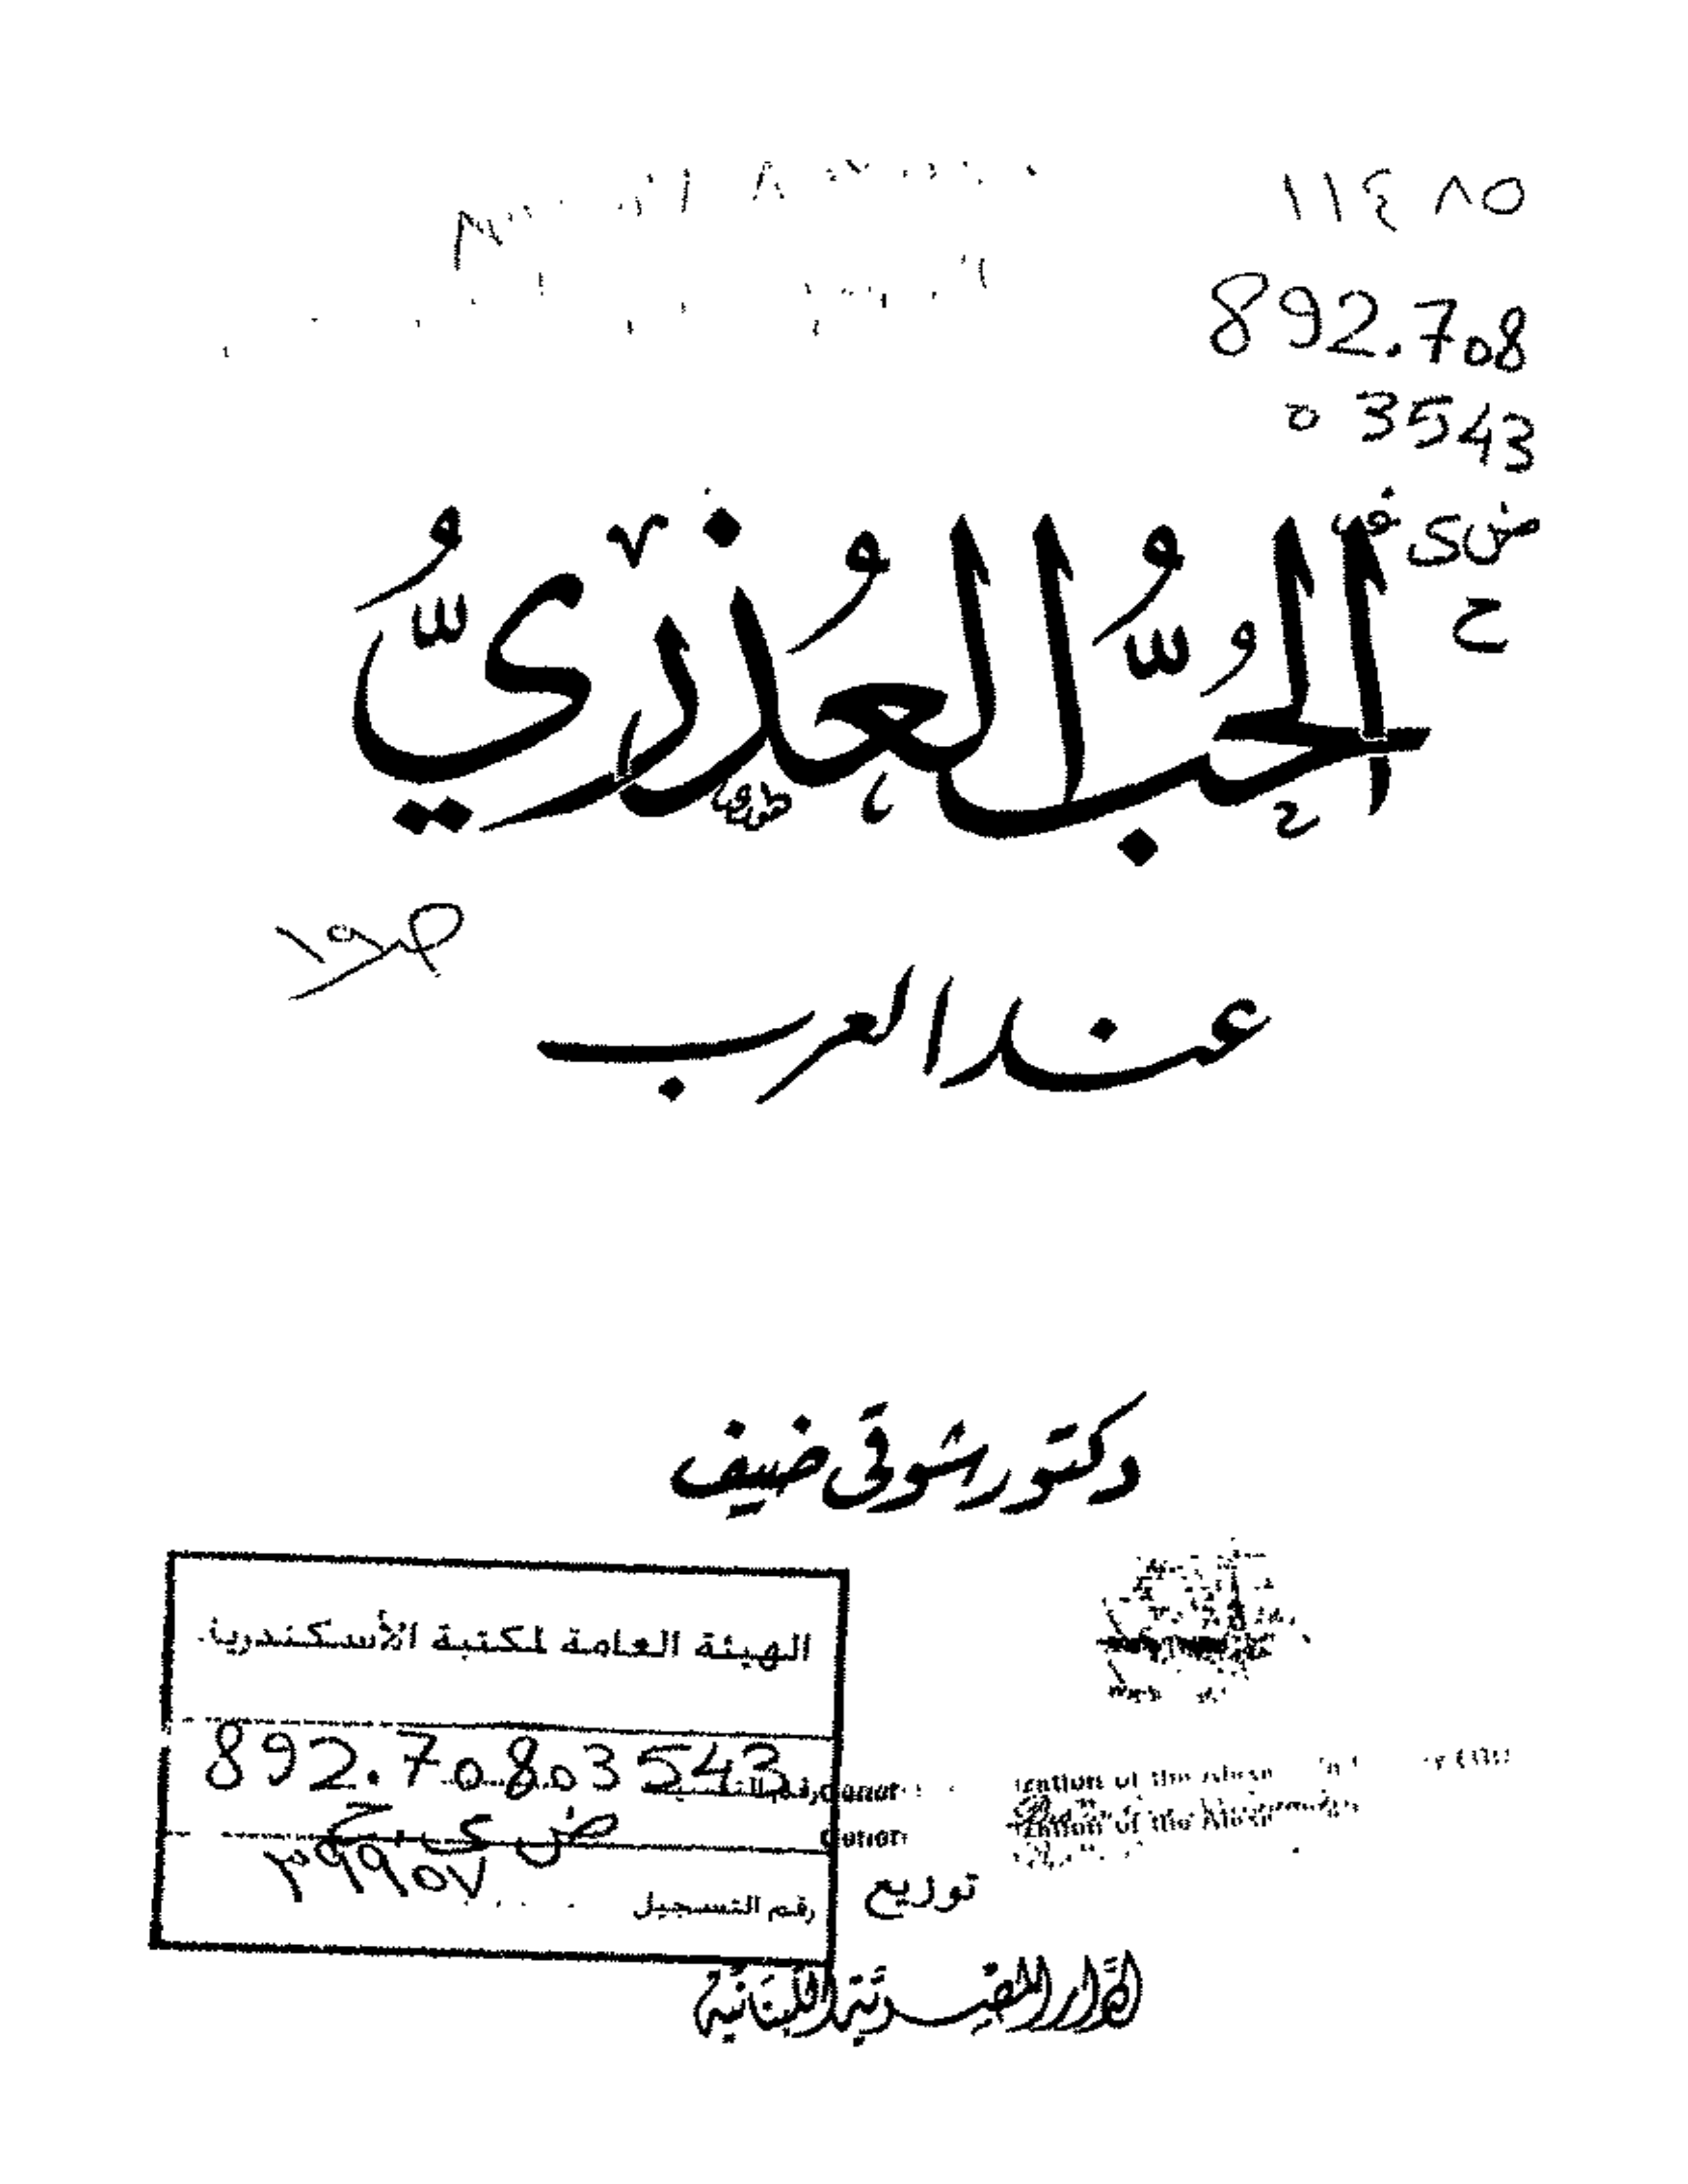 ١١٤٨٥
892.708
03543
ض ى ف
ح
الحُبُّ العُذْرِيُّ
عند العرب
دكتور شوقي ضيف
الهيئة العامة لمكتبة الأسكندرية
892.70803543
ض ى . ح
رقم التسجيل ٣٩٩٥٧
توزيع
الدار المصرية اللبنانية